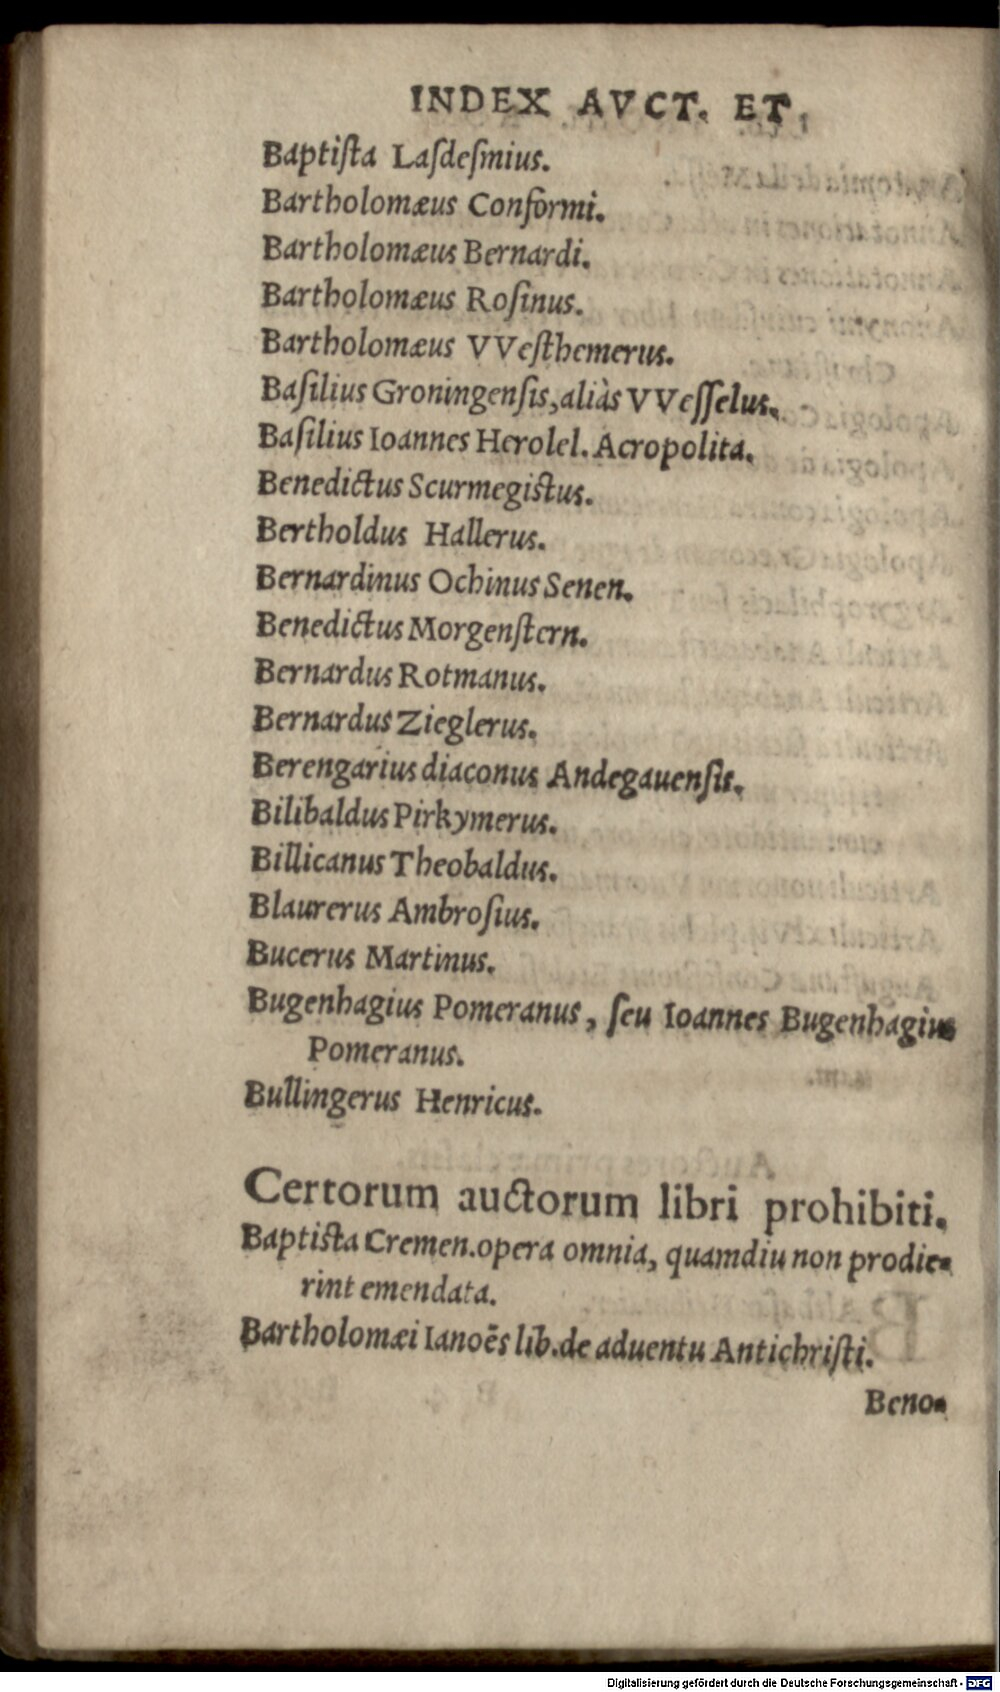 INDEX AVCT. ET
Baptiſta Laſdeſmius.
Bartholomæus Conformi.
Bartholomæus Bernardi.
Bartholomæus Roſinus.
Bartholomæus VVeſthemerus.
Baſilius Groningenſis, aliàs VVeſſelus.
Baſilius Ioannes Herolel. Acropolita.
Benedictus Scurmegiſtus.
Bertholdus Hallerus.
Bernardinus Ochinus Senen.
Benedictus Morgenſtern.
Bernardus Rotmanus.
Bernardus Zieglerus.
Berengarius diaconus Andegauenſis.
Bilibaldus Pirkymerus.
Billicanus Theobaldus.
Blaurerus Ambroſius.
Bucerus Martinus.
Bugenhagius Pomeranus, ſeu Ioannes Bugenhagius
Pomeranus.
Bullingerus Henricus.
Certorum auctorum libri prohibiti.
Baptiſta Cremen. opera omnia, quamdiu non prodie-
rint emendata.
Bartholomæi Ianoēs lib. de aduentu Antichriſti.
Beno-
Digitalisierung gefördert durch die Deutsche Forschungsgemeinschaft - DFG